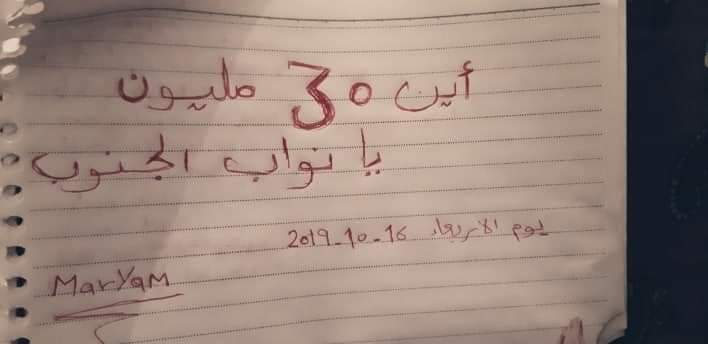 أين 30 مليون
يا نواب الجنوب
يوم الاربعاء 16-10-2019
MarYaM